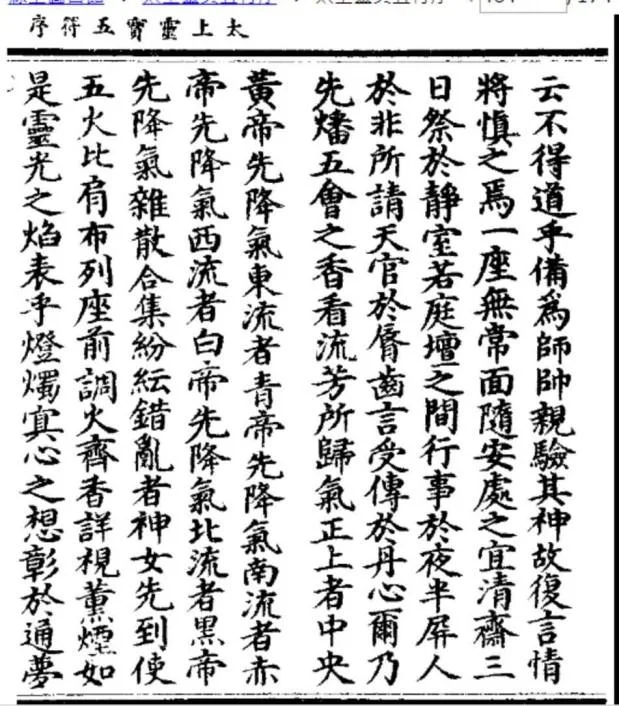 太上靈寶五符序
云不得道乎備爲師帥親驗其神故復言情
將慎之焉一座無常面隨安處之宜清齋三
日祭於靜室若庭壇之間行事於夜半屏人
於非所請天官於脣齒言受傳於丹心爾乃
先燔五會之香看流芳所歸氣正上者中央
黃帝先降氣東流者青帝先降氣南流者赤
帝先降氣西流者白帝先降氣北流者黑帝
先降氣雜散合集紛紜錯亂者神女先到使
五火比肩布列座前調火齊香詳視薰煙如
是靈光之焰表乎燈燭寘心之想彰於通夢